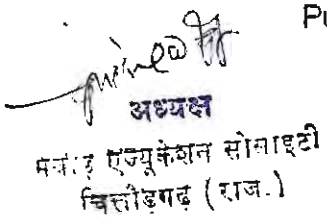 Pu
अध्यक्ष
एज्यूकेशन सोसाइटी
चित्तौड़गढ़ (राज.)